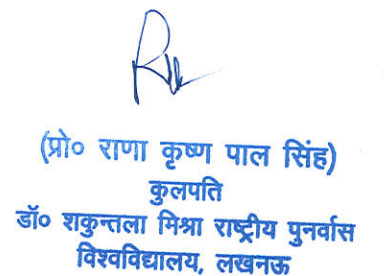 (प्रो० राणा कृष्ण पाल सिंह)
कुलपति
डॉ० शकुन्तला मिश्रा राष्ट्रीय पुनर्वास
विश्वविद्यालय, लखनऊ